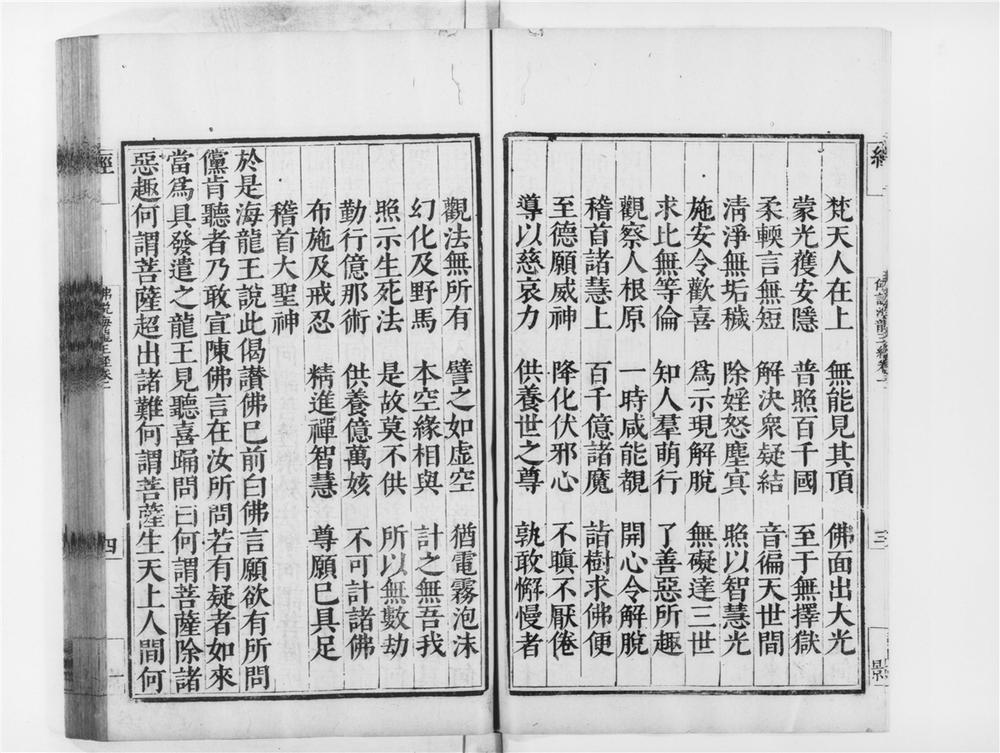 梵天人在上　無能見其頂　佛面出大光
蒙光䕶安隱　普照百千國　至于無擇獄
柔輭言無短　解決衆疑結　音徧天世間
淸淨無垢穢　除婬怒塵㝠　照以智慧光
施安令歡喜　爲示現解脫　無礙達三世
求比無等倫　知人羣萌行　了善惡所趣
觀察人根原　一時咸能覩　開心令解脫
稽首諸慧上　百千億諸魔　詣樹求佛便
至德願威神　降化伏邪心　不瞋不厭倦
導以慈哀力　供養世之尊　孰敢懈慢者
觀法無所有　譬之如虛空　猶電霧泡沫
幻化及野馬　本空緣相與　計之無吾我
照示生死法　是故莫不供　所以無數劫
勤行億那術　供養億萬姟　不可計諸佛
布施及戒忍　精進禪智慧　尊願已具足
稽首大聖神
於是海龍王說此偈讚佛已前白佛言願欲有所問
儻肯聽者乃敢宣陳佛言在汝所問若有疑者如來
當爲具發遣之龍王見聽喜踊問曰何謂菩薩除諸
惡趣何謂菩薩超出諸難何謂菩薩生天上人間何
經
佛說海龍王經卷一
四
三